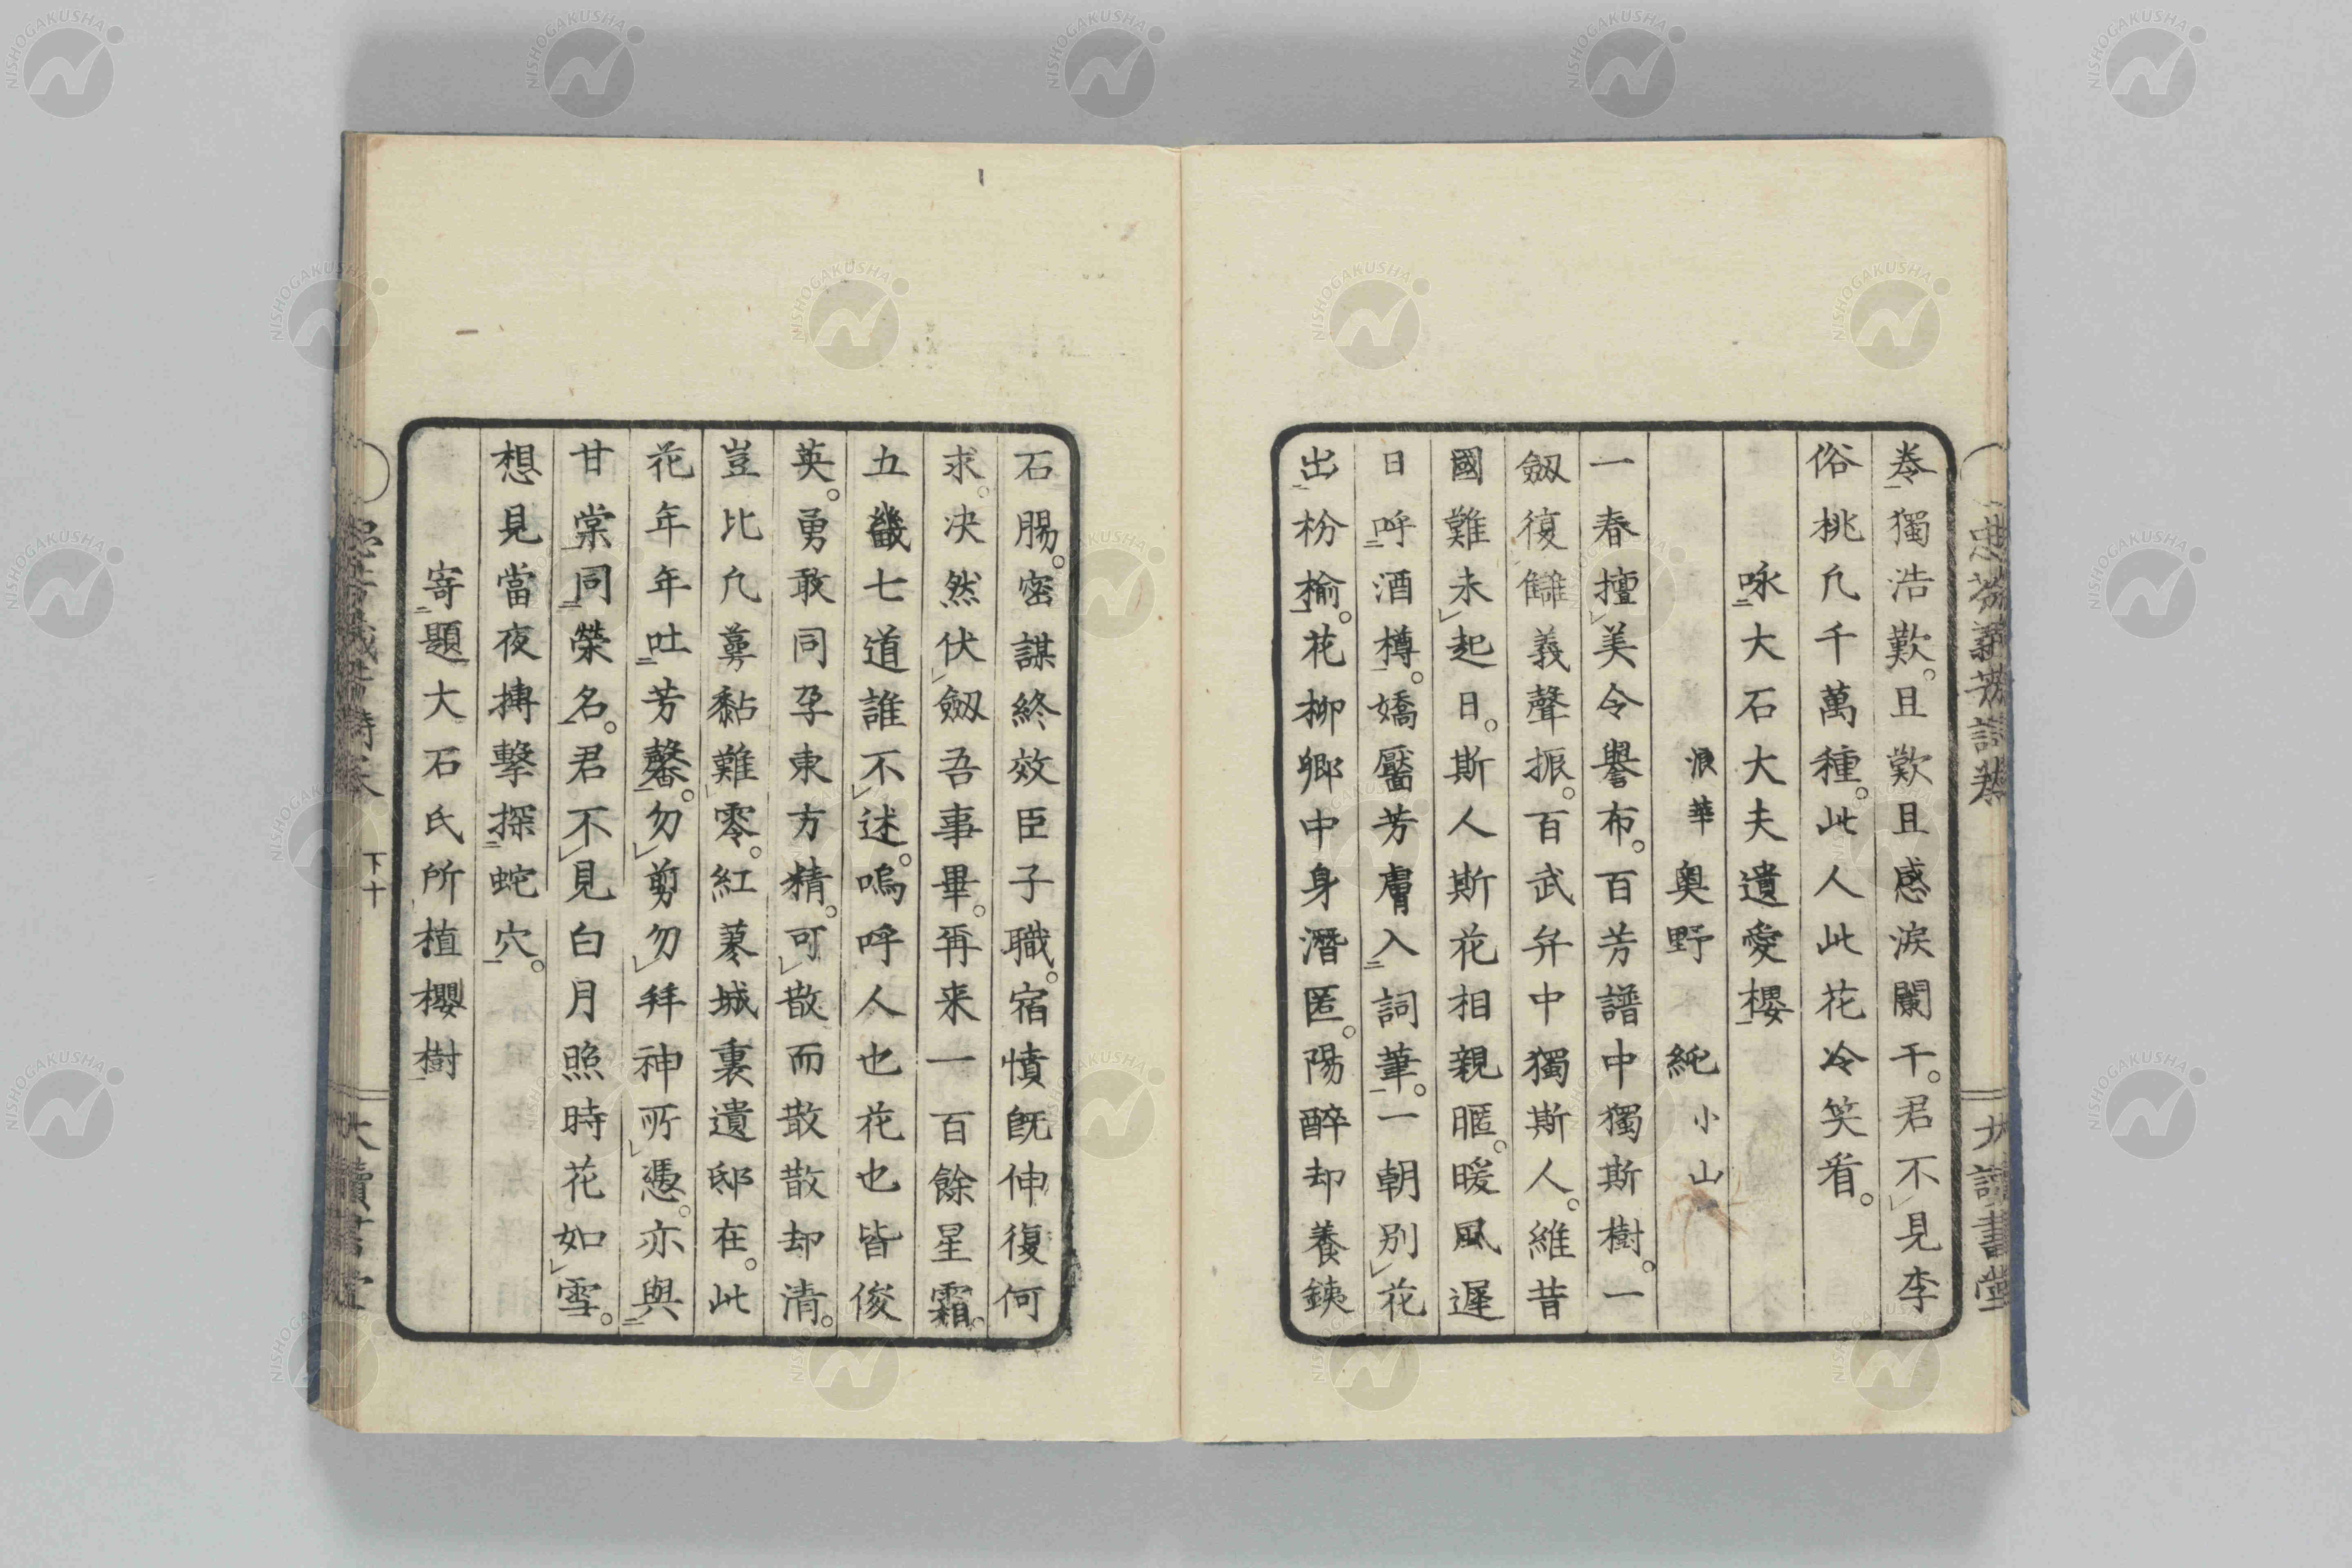 巻獨浩歎。且歎且感淚闌干。君不見李
俗桃凡千萬種。此人此花冷笑看。
咏大石大夫遺愛櫻
浪華 奥野 純 小山
一春擅美令譽布。百芳譜中獨斯樹。一
劔復讎義聲振。百武弁中獨斯人。維昔
國難未起日。斯人斯花相親暱。暖風遲
日呼酒樽。嬌靨芳膚入詞筆。一朝別花
出枌榆。花柳鄉中身潛匿。陽醉却養鐵
石腸。密謀終效臣子職。宿憤旣伸復何
求。决然伏劔吾事畢。再来一百餘星霜。
五畿七道誰不述。嗚呼人也花也皆俊
英。勇敢同孕東方精。可散而散散却清。
豈比凡萼黏難零。紅蓼城裏遺邸在。此
花年年吐芳馨。勿剪勿拜神所憑。亦與
甘棠同榮名。君不見白月照時花如雪。
想見當夜搏擊探蛇穴。
寄題大石氏所植櫻樹
下十
大讀書堂
大讀書堂
NISHOGAKUSHA